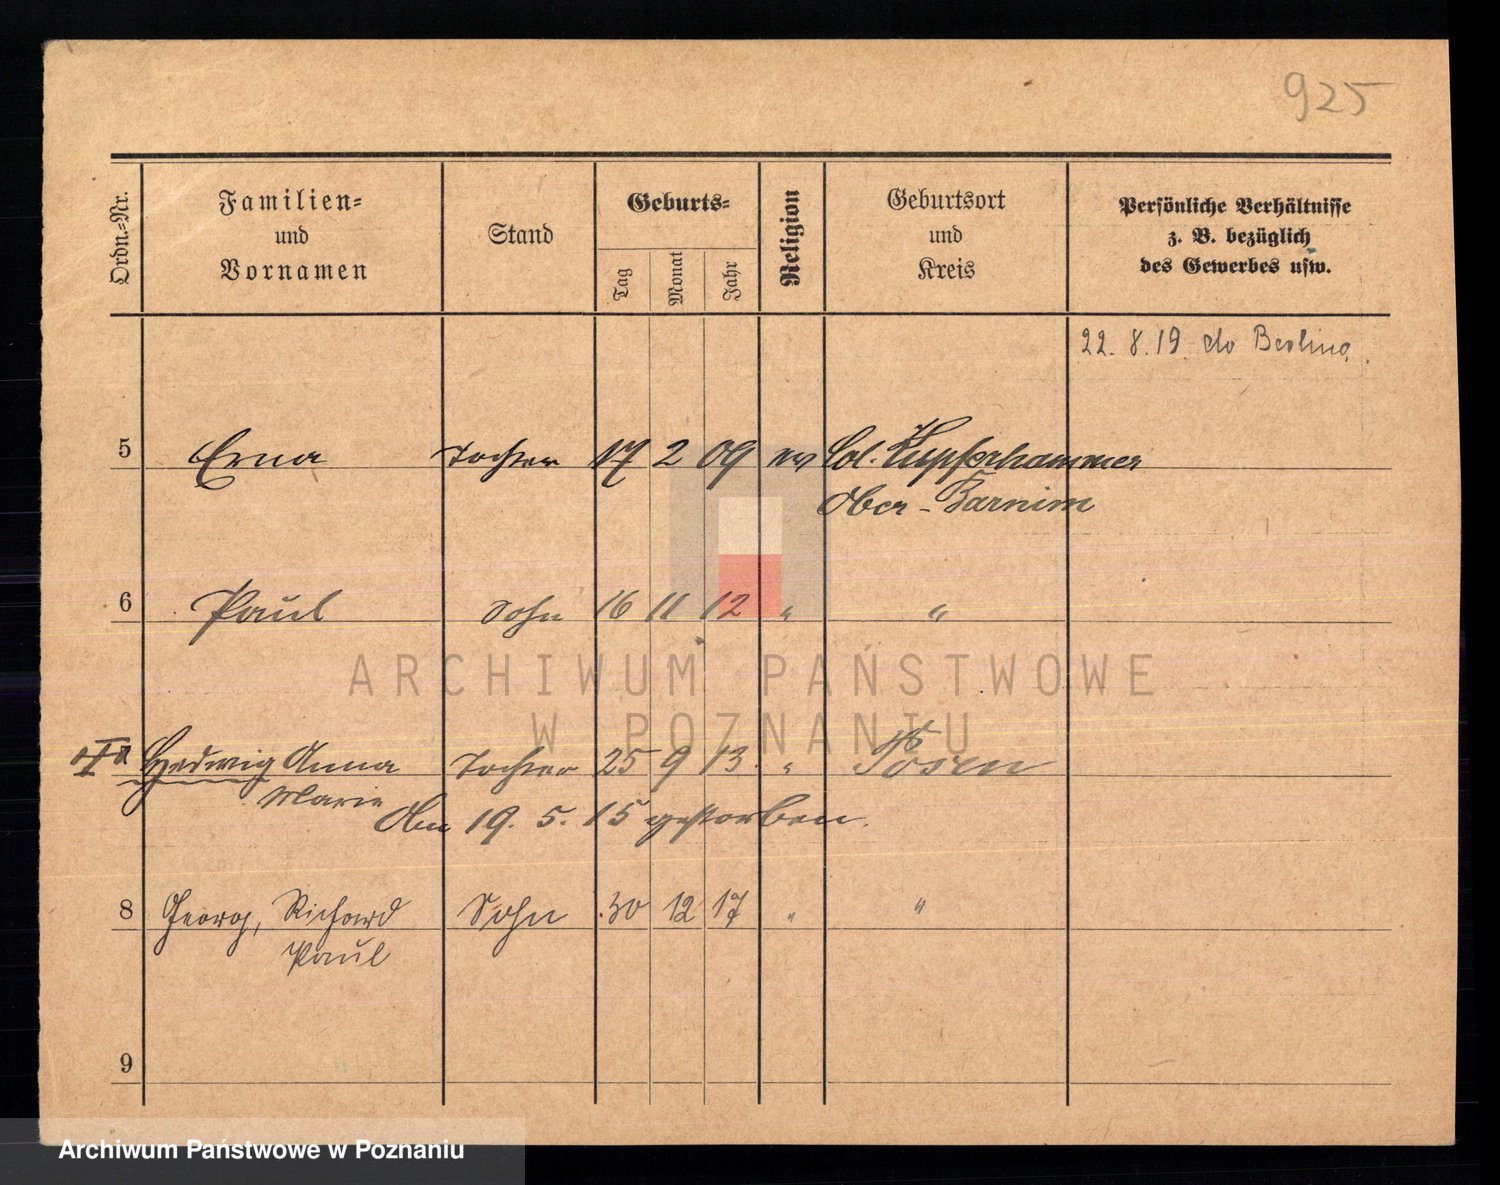 925
Ordn.-Nr.
Familien-
und
Vornamen
Stand
Geburts-
Tag
Monat
Jahr
Religion
Geburtsort
und
Kreis
Persönliche Verhältnisse
z. B. bezüglich
des Gewerbes usw.
22. 8. 19 do Berlina.
5 Erna Tochter 17 2 09 ev Col. Kupferhammer
Ober-Barnim
6 Paul Sohn 16 11 12 " "
ARCHIWUM PAŃSTWOWE
W POZNANIU
Hedwig Anna Tochter 25 9 13 " Posen
Marie
Am 19. 5. 15 gestorben.
8 Georg, Richard Sohn 30 12 17 " "
Paul
9
Archiwum Państwowe w Poznaniu